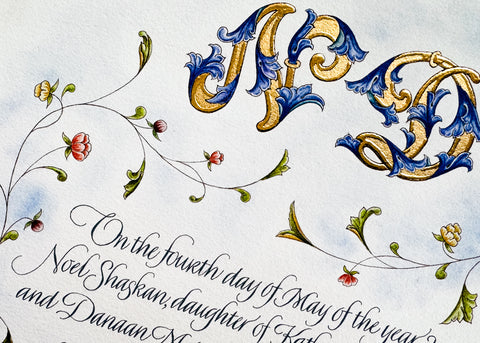 On the fourth day of May of the year
Noel Shaskan, daughter of Kath
and Danaan M